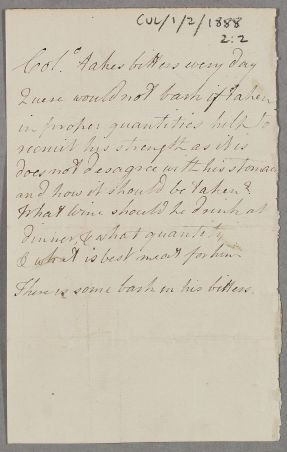 CUL/1/2/1888
2:2
Col.ᶜ takes bitters every day
Quere would not bark if taken
in proper quantities help to
recruit his strength as it is
does not desagree with his stomac
and how it should be taken &
What wine should he drink at
dinner, & what quantity
& what is best meat for him
There is some bark in his bitters.